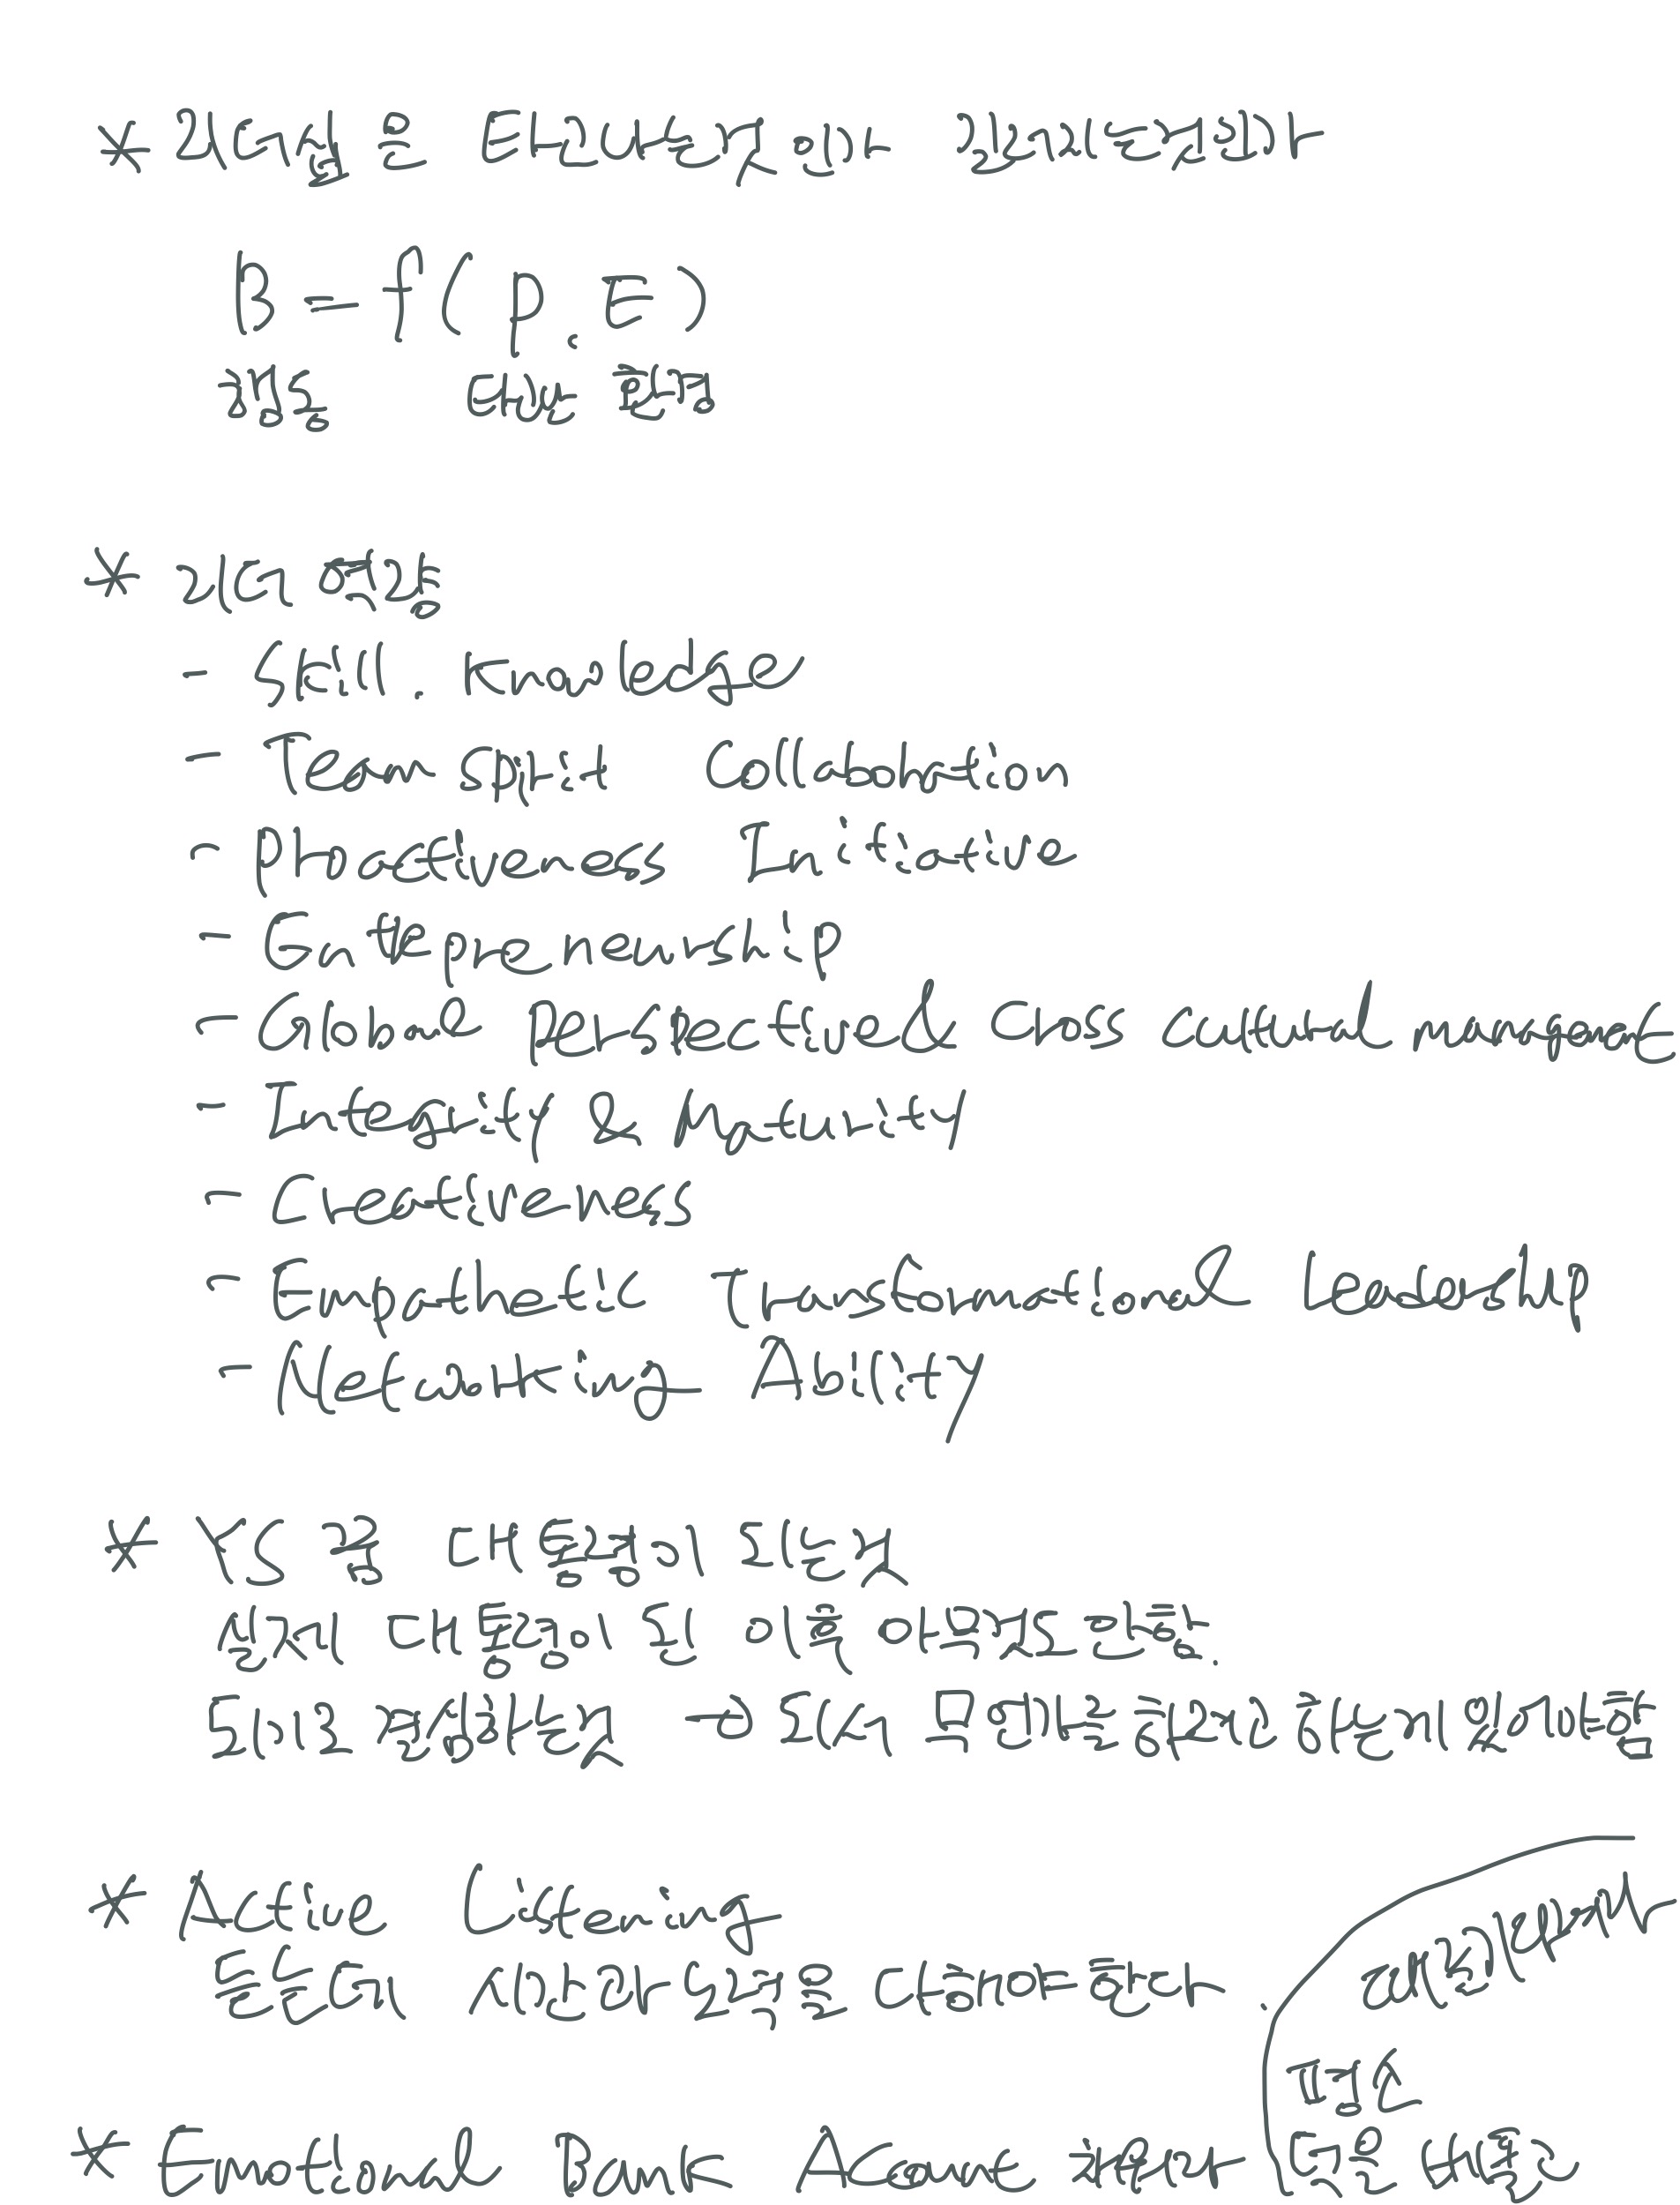 * 리더쉽은 타고나는것이 아니라 길러지는것이다
B = f( P. E )
행동 타고남 환경
* 리더 역량
- Skill. Knowledge
- Team spirit Collaboration
- Proactiveness Initiative
- Enterpreneurship
- Global Perspective & Cross cultural management
- Integrity & Maturity
- Creativeness
- Empathetic Transformational leadership
- Networking Ability
* YS 꿈 대통령이 되는것
실제 대통령이 된 이후 업적으로 판단함.
도시를 건설하는것 → 도시가 무엇하는 공간인가, 하는게 있어야함
* Active Listening
듣는다. 사람의 감정을 다룸아야한다.
* Emotional Bank Account 개념
empowerment
평소
덕을 베풂